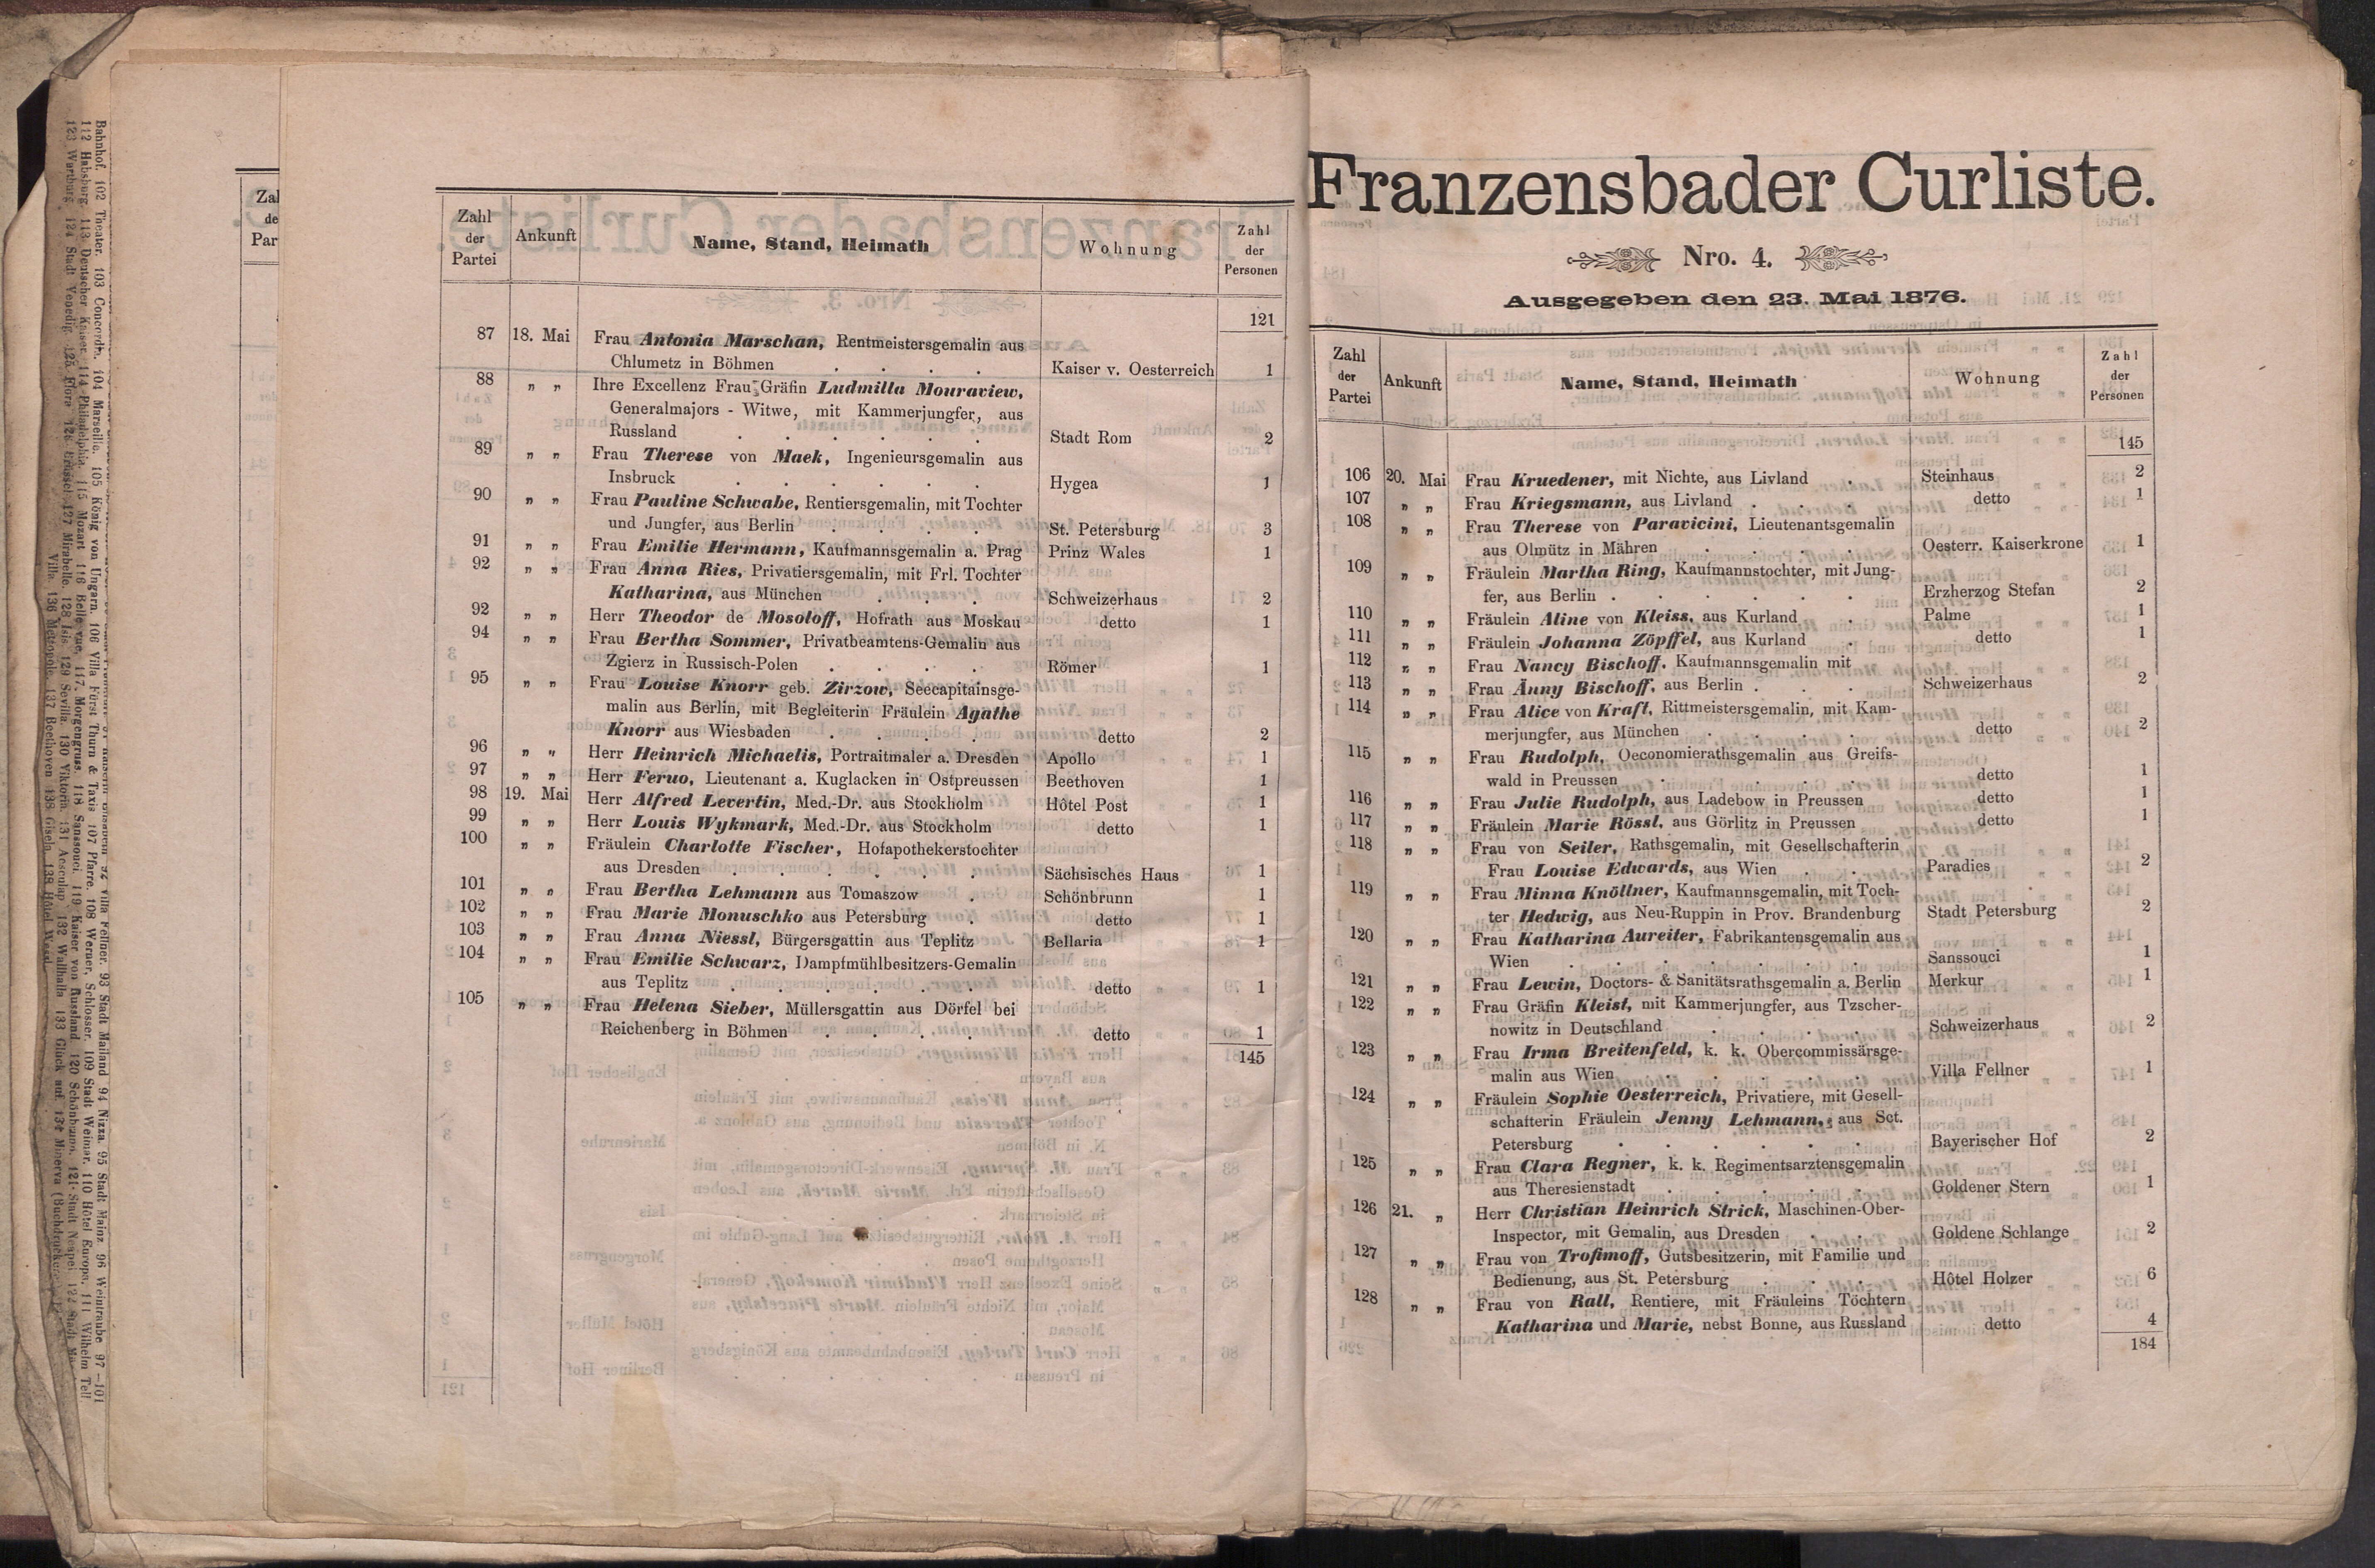 Zahl der Partei
Ankunft
Name, Stand, Heimath
Wohnung
Zahl der Personen
121
87 18. Mai Frau Antonia Marschan, Rentmeistersgemalin aus
Chlumetz in Böhmen . . . . Kaiser v. Oesterreich 1
88 „ „ Ihre Excellenz Frau Gräfin Ludmilla Mouraview,
Generalmajors - Witwe, mit Kammerjungfer, aus
Russland . . . . . . Stadt Rom 2
89 „ „ Frau Therese von Maek, Ingenieursgemalin aus
Insbruck . . . . . . Hygea 1
90 „ „ Frau Pauline Schwabe, Rentiersgemalin, mit Tochter
und Jungfer, aus Berlin . . . . St. Petersburg 3
91 „ „ Frau Emilie Hermann, Kaufmannsgemalin a. Prag Prinz Wales 1
92 „ „ Frau Anna Ries, Privatiersgemalin, mit Frl. Tochter
Katharina, aus München . . . Schweizerhaus 2
92 „ „ Herr Theodor de Mosoloff, Hofrath aus Moskau detto 1
94 „ „ Frau Bertha Sommer, Privatbeamtens-Gemalin aus
Zgierz in Russisch-Polen . . . . Römer 1
95 „ „ Frau Louise Knorr geb. Zirzow, Seecapitainsge-
malin aus Berlin, mit Begleiterin Fräulein Agathe
Knorr aus Wiesbaden . . . . detto 2
96 „ „ Herr Heinrich Michaelis, Portraitmaler a. Dresden Apollo 1
97 „ „ Herr Feruo, Lieutenant a. Kuglacken in Ostpreussen Beethoven 1
98 19. Mai Herr Alfred Levertin, Med.-Dr. aus Stockholm Hôtel Post 1
99 „ „ Herr Louis Wykmark, Med.-Dr. aus Stockholm detto 1
100 „ „ Fräulein Charlotte Fischer, Hofapothekerstochter
aus Dresden . . . . . . Sächsisches Haus 1
101 „ „ Frau Bertha Lehmann aus Tomaszow . Schönbrunn 1
102 „ „ Frau Marie Monuschko aus Petersburg . detto 1
103 „ „ Frau Anna Niessl, Bürgersgattin aus Teplitz Bellaria 1
104 „ „ Frau Emilie Schwarz, Dampfmühlbesitzers-Gemalin
aus Teplitz . . . . . . detto 1
105 „ „ Frau Helena Sieber, Müllersgattin aus Dörfel bei
Reichenberg in Böhmen . . . . detto 1
145
Franzensbader Curliste.
Nro. 4.
Ausgegeben den 23. Mai 1876.
Zahl der Partei
Ankunft
Name, Stand, Heimath
Wohnung
Zahl der Personen
145
106 20. Mai Frau Kruedener, mit Nichte, aus Livland . Steinhaus 2
107 „ „ Frau Kriegsmann, aus Livland . . . detto 1
108 „ „ Frau Therese von Paravicini, Lieutenantsgemalin
aus Olmütz in Mähren . . . . Oesterr. Kaiserkrone 1
109 „ „ Fräulein Martha Ring, Kaufmannstochter, mit Jung-
fer, aus Berlin . . . . . . Erzherzog Stefan 2
110 „ „ Fräulein Aline von Kleiss, aus Kurland . Palme 1
111 „ „ Fräulein Johanna Zöpffel, aus Kurland . detto 1
112 „ „ Frau Nancy Bischoff, Kaufmannsgemalin mit
113 „ „ Frau Änny Bischoff, aus Berlin . . . Schweizerhaus 2
114 „ „ Frau Alice von Kraft, Rittmeistersgemalin, mit Kam-
merjungfer, aus München . . . . detto 2
115 „ „ Frau Rudolph, Oeconomierathsgemalin aus Greifs-
wald in Preussen . . . . . detto 1
116 „ „ Frau Julie Rudolph, aus Ladebow in Preussen detto 1
117 „ „ Fräulein Marie Rössl, aus Görlitz in Preussen detto 1
118 „ „ Frau von Seiler, Rathsgemalin, mit Gesellschafterin
Frau Louise Edwards, aus Wien . . Paradies 2
119 „ „ Frau Minna Knöllner, Kaufmannsgemalin, mit Toch-
ter Hedwig, aus Neu-Ruppin in Prov. Brandenburg Stadt Petersburg 2
120 „ „ Frau Katharina Aureiter, Fabrikantensgemalin aus
Wien . . . . . . . Sanssouci 1
121 „ „ Frau Lewin, Doctors- & Sanitätsrathsgemalin a. Berlin Merkur 1
122 „ „ Frau Gräfin Kleist, mit Kammerjungfer, aus Tzscher-
nowitz in Deutschland . . . . Schweizerhaus 2
123 „ „ Frau Irma Breitenfeld, k. k. Obercommissärsge-
malin aus Wien . . . . . Villa Fellner 1
124 „ „ Fräulein Sophie Oesterreich, Privatiere, mit Gesell-
schafterin Fräulein Jenny Lehmann, aus Sct.
Petersburg . . . . . . Bayerischer Hof 2
125 „ „ Frau Clara Regner, k. k. Regimentsarztensgemalin
aus Theresienstadt . . . . . Goldener Stern 1
126 21. „ Herr Christian Heinrich Strick, Maschinen-Ober-
Inspector, mit Gemalin, aus Dresden . . Goldene Schlange 2
127 „ „ Frau von Trofimoff, Gutsbesitzerin, mit Familie und
Bedienung, aus St. Petersburg . . . Hôtel Holzer 6
128 „ „ Frau von Rall, Rentiere, mit Fräuleins Töchtern
Katharina und Marie, nebst Bonne, aus Russland detto 4
184